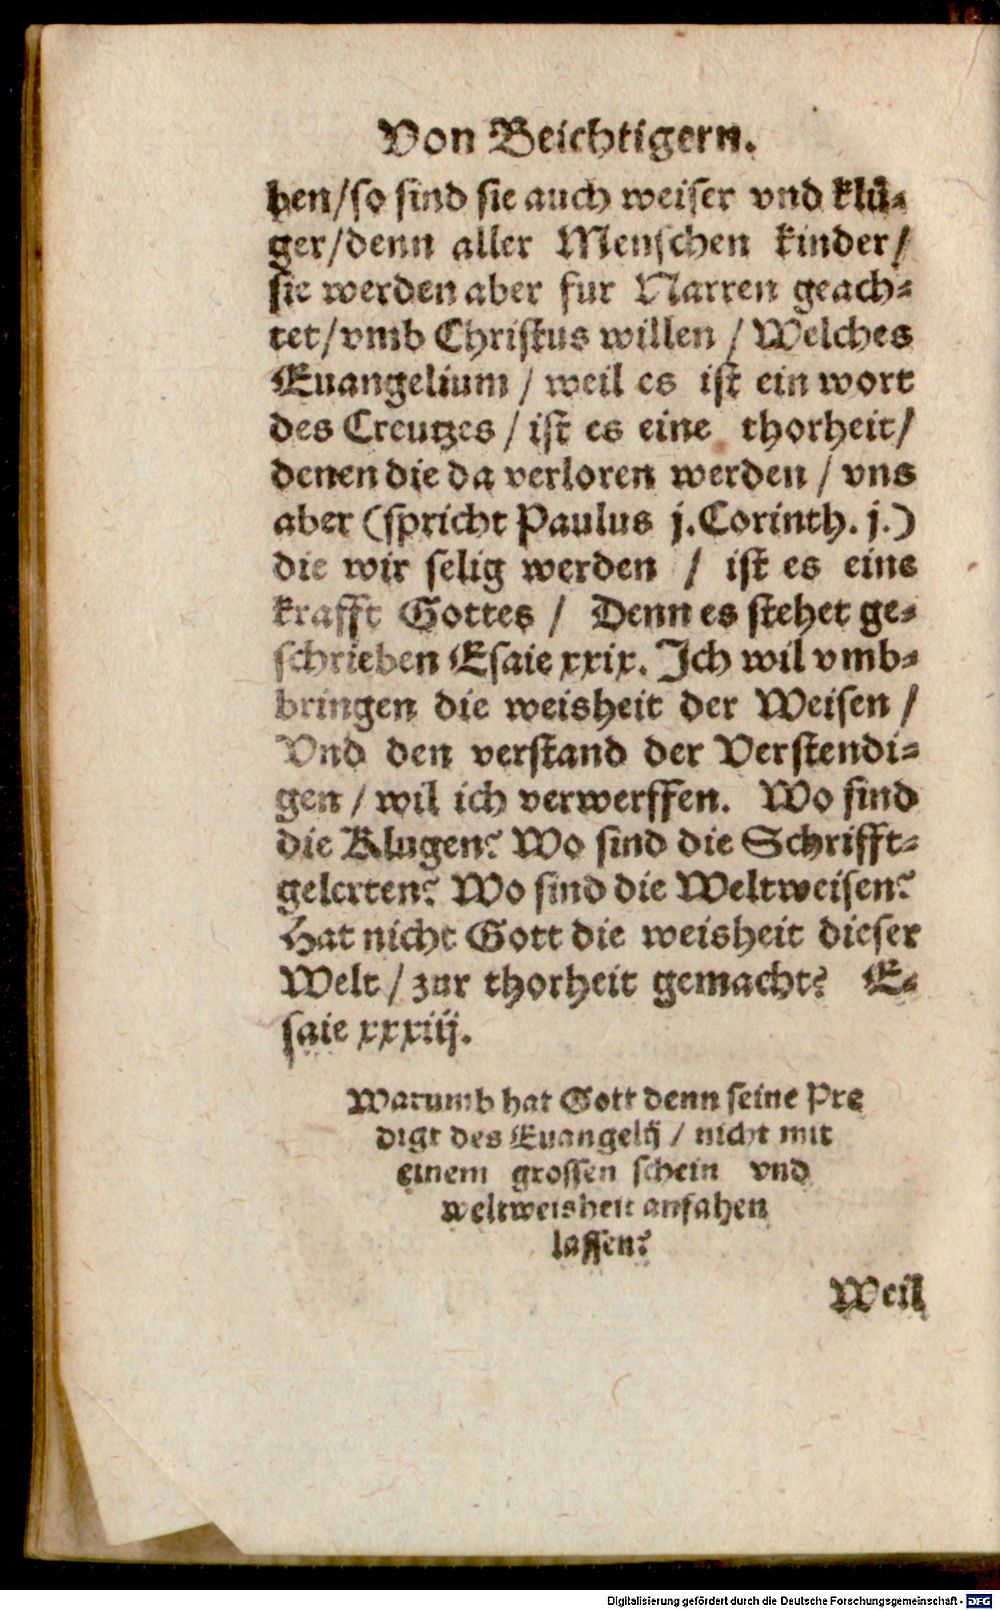 Von Beichtigern.
hen/so sind sie auch weiser vnd klü-
ger/denn aller Menschen kinder/
sie werden aber fur Narren geach-
tet/vmb Christus willen / Welches
Euangelium / weil es ist ein wort
des Creutzes / ist es eine thorheit/
denen die da verloren werden / vns
aber (spricht Paulus j. Corinth. j.)
die wir selig werden / ist es eine
krafft Gottes / Denn es stehet ge-
schrieben Esaie xxix. Ich wil vmb-
bringen die weisheit der Weisen /
Vnd den verstand der Verstendi-
gen / wil ich verwerffen. Wo sind
die Klugen? Wo sind die Schrifft-
gelerten? Wo sind die Weltweisen?
Hat nicht Gott die weisheit dieser
Welt / zur thorheit gemacht? E-
saie xxxiij.
Warumb hat Gott denn seine Pre
digt des Euangelij / nicht mit
einem grossen schein vnd
weltweisheit anfahen
lassen?
Weil
Digitalisierung gefördert durch die Deutsche Forschungsgemeinschaft - DFG